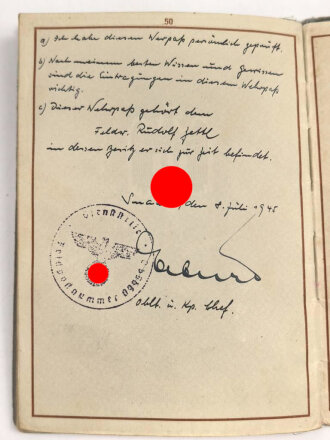 50
a) Ich habe diesen Wehrpaß persönlich geprüft.
b) Nach meinem besten Wissen und Gewissen
sind die Eintragungen in diesem Wehrpaß
richtig.
c) Dieser Wehrpaß gehört dem
Feldw. Rudolf
in dessen Besitz er sich zur Zeit befindet.
den 8. Juli 1945
Dienststelle
Feldpostnummer
Oblt. u. Kp. Chef.